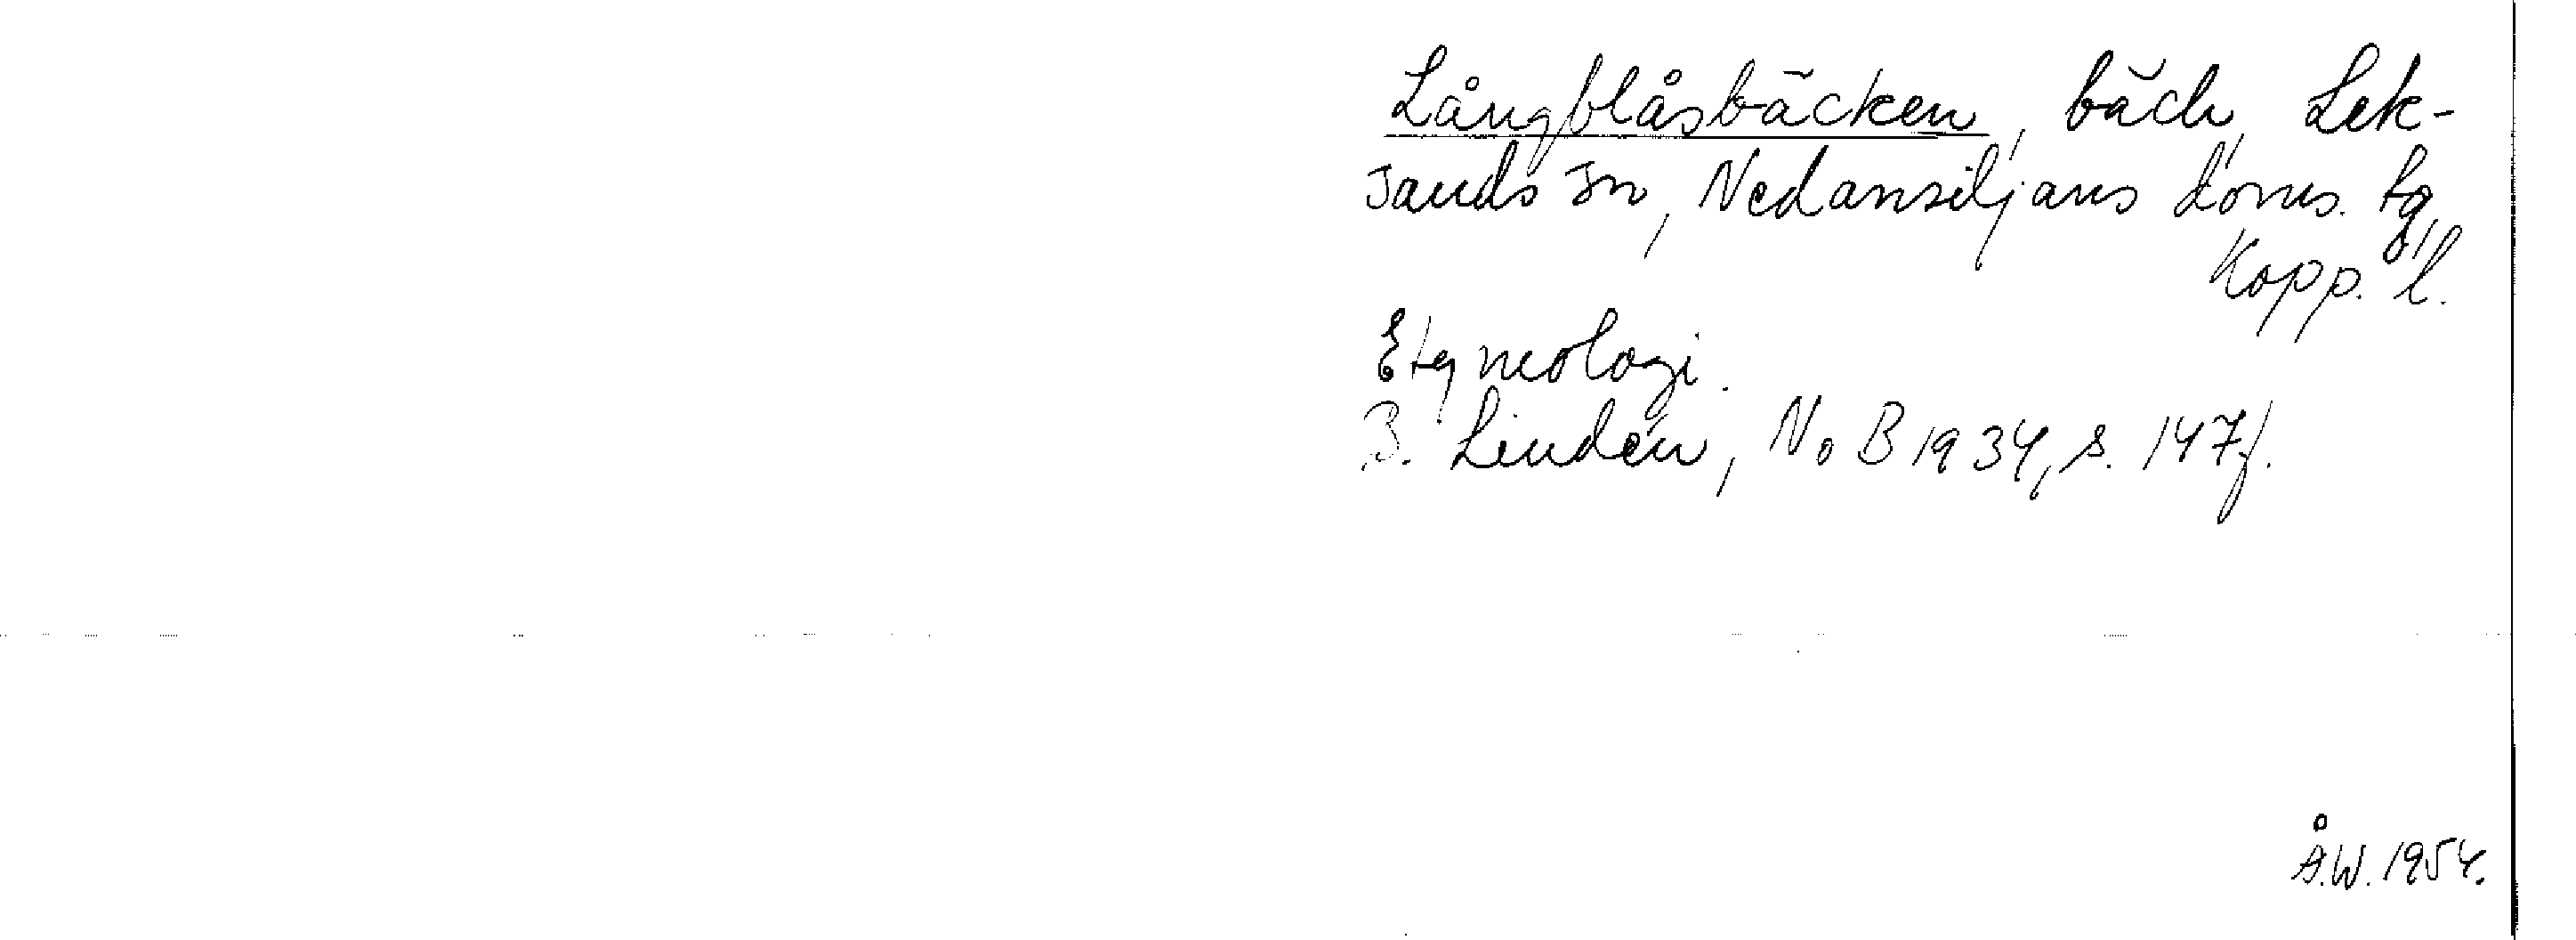 Långblåsbäcken, bäck, Lek-
sands sn, Nedansiljans doms. tg,
Kopp. l.
Etymologi.
B. Lindén, NoB 1934, s. 147f.
Å.W. 1954.